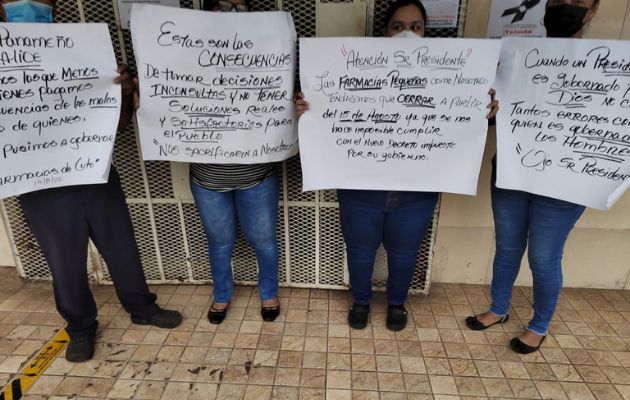 Panameño
Alice
os los que Menos
ienes pagamos
cuencias de las malas
s de quienes.
Pusimos a gobernar
armacias de Luto"
Estas son las
CONSECUENCIAS
De tumar decisiones
INCONSULTAS y no TENER
Soluciones Reales
y Satisfactorias para
el Pueblo
"Nos Sacrificaren a Nosotros
"Atención Sr Presidente"
Las FARMACIAS Pequeñas como Nosotros
Tendremos que CERRAR a partir
del 15 de Agosto ya que se nos
hace imposible cumplir
con el Nuevo Decreto impuesto
por su gobierno.
Cuando un Presiden
es gobernado p
Dios no co
Tantos errores com
quien es gobernado
los Hombres
"Ojo Sr. Presidente